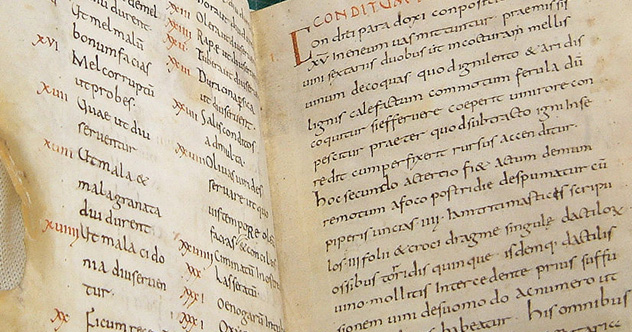 diu durent
Ut mel malū
bonum facias
XVI Mel corruptū
ut probes.
XVII Uuae ut diu
seruentur
XVIII Ut mala &
malagranata
diu durent
XVIIII Ut mala cido
nia diu seruen
tur
XX Ficum rece
XXIII Olera ut diu
XXIIII Rape ut diu
ut diu seruent
Sales conditos
ad multa
Oliuas uirides
seruare ut quo
uis tempore ole
facias & conciles
Ciminatū in ostre
XXX Laseratū
XXXI Oenogarū in tu
CONDITUM
Conditi paradoxi conpositio
XV in eneum uas mittuntur praemissis
uini sextariis duobus ut in cocturam mellis
uinum decoquas quo digni lento & aridis
lignis calefactum commotum ferula dū
coquitur si efferuere coeperit uini rore con
pescitur praeter quod subtracto igni in se
redit cum perfrixerit rursus accenditur.
hoc secundo ac tertio fi& ac tum demum
remotum a foco postridie despumatur cū
piperis uncias IIII. iam triti masticis scripu
los III folii & croci dragme singulę dactilorū
ossibus torridis quinque isdemq; dactilis
uino mollitis intercedente prius suffu
sione uini de suo modo ac numero ut
habeatur. his omnibus